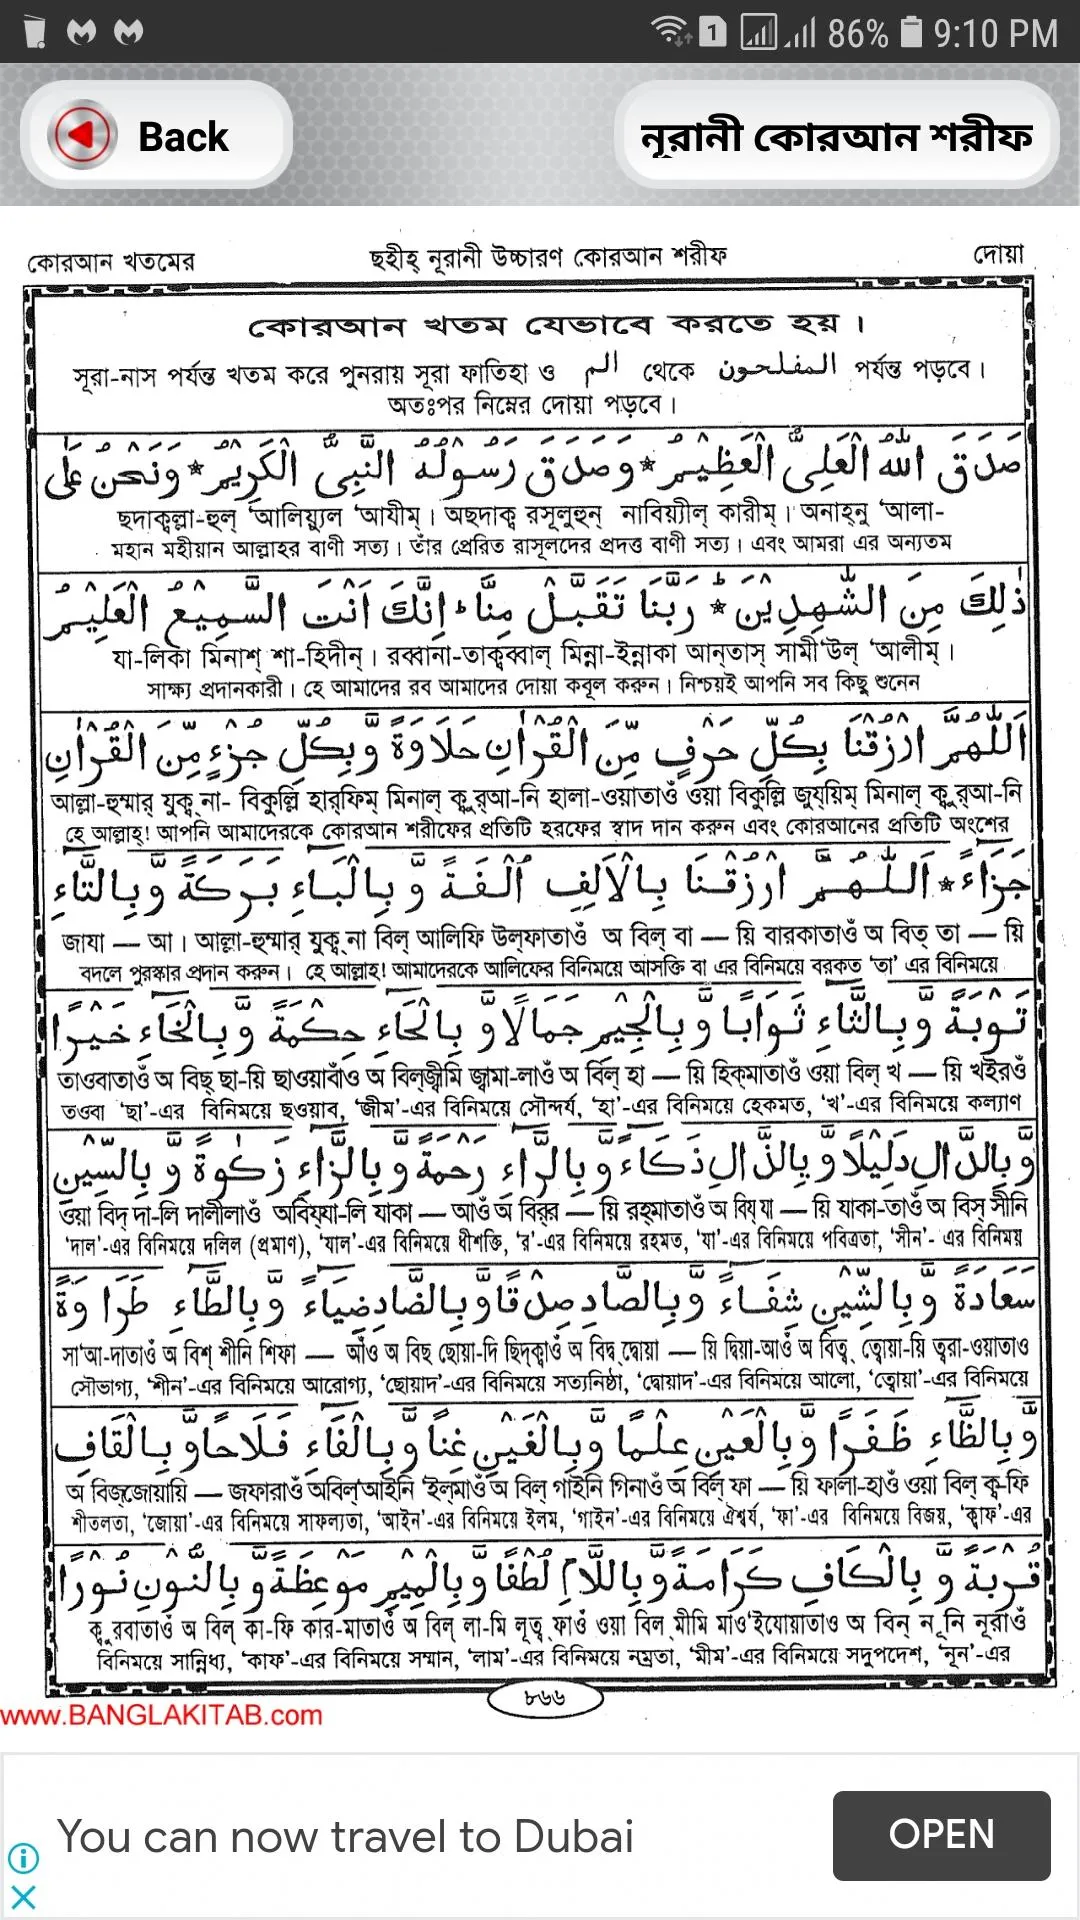 86% 9:10 PM
Back
নূরানী কোরআন শরীফ
কোরআন খতমের ছহীহ্ নূরানী উচ্চারণ কোরআন শরীফ দোয়া
কোরআন খতম যেভাবে করতে হয়।
সূরা-নাস পর্যন্ত খতম করে পুনরায় সূরা ফাতিহা ও الم থেকে المفلحون পর্যন্ত পড়বে।
অতঃপর নিম্নের দোয়া পড়বে।
صَدَقَ اللّٰهُ الْعَلِىُّ الْعَظِيْمُ * وَصَدَقَ رَسُوْلُهُ النَّبِىُّ الْكَرِيْمُ * وَنَحْنُ عَلٰى
ছদাক্বল্লা-হুল্ ‘আলিয়্যুল ‘আযীম্। অছদাক্ব রসূলুহুন্ নাবিয়্যীল্ কারীম্। অনাহ্নু ‘আলা-
মহান মহীয়ান আল্লাহর বাণী সত্য। তাঁর প্রেরিত রাসূলদের প্রদত্ত বাণী সত্য। এবং আমরা এর অন্যতম
ذٰلِكَ مِنَ الشّٰهِدِيْنَ * رَبَّنَا تَقَبَّلْ مِنَّا ط اِنَّكَ اَنْتَ السَّمِيْعُ الْعَلِيْمُ
যা-লিকা মিনাশ্ শা-হিদীন্। রব্বানা-তাক্বব্বাল্ মিন্না-ইন্নাকা আন্‌তাস্ সামী‘উল্ ‘আলীম্।
সাক্ষ্য প্রদানকারী। হে আমাদের রব আমাদের দোয়া কবূল করুন। নিশ্চয়ই আপনি সব কিছু শুনেন
اَللّٰهُمَّ ارْزُقْنَا بِكُلِّ حَرْفٍ مِّنَ الْقُرْاٰنِ حَلَاوَةً وَّبِكُلِّ جُزْءٍ مِّنَ الْقُرْاٰنِ
আল্লা-হুম্মার্ যুক্ব্ না- বিকুল্লি হার্‌ফিম্ মিনাল্ ক্বুর্‌আ-নি হালা-ওয়াতাওঁ ওয়া বিকুল্লি জুয্‌য়িম্ মিনাল্ ক্বুর্‌আ-নি
হে আল্লাহ্! আপনি আমাদেরকে কোরআন শরীফের প্রতিটি হরফের স্বাদ দান করুন এবং কোরআনের প্রতিটি অংশের
جَزَاءً * اَللّٰهُمَّ ارْزُقْنَا بِالْاَلِفِ اُلْفَةً وَّبِالْبَاءِ بَرَكَةً وَّبِالتَّاءِ
জাযা — আ। আল্লা-হুম্মার্ যুক্ব্ না বিল্ আলিফি উল্‌ফাতাওঁ অ বিল্ বা — য়ি বারকাতাওঁ অ বিত্ তা — য়ি
বদলে পুরস্কার প্রদান করুন। হে আল্লাহ্! আমাদেরকে আলিফের বিনিময়ে আসক্তি বা এর বিনিময়ে বরকত ‘তা’ এর বিনিময়ে
تَوْبَةً وَّبِالثَّاءِ ثَوَابًا وَّبِالْجِيْمِ جَمَالًا وَّبِالْحَاءِ حِكْمَةً وَّبِالْخَاءِ خَيْرًا
তাওবাতাওঁ অ বিছ্ ছা-য়ি ছাওয়াবাঁও অ বিল্‌জ্বীমি জ্বামা-লাওঁ অ বিল্ হা — য়ি হিক্‌মাতাওঁ ওয়া বিল্ খ — য়ি খইরওঁ
তওবা ‘ছা’-এর বিনিময়ে ছওয়াব, ‘জীম’-এর বিনিময়ে সৌন্দর্য, ‘হা’-এর বিনিময়ে হেকমত, ‘খ’-এর বিনিময়ে কল্যাণ
وَّبِالدَّالِ دَلِيْلًا وَّبِالذَّالِ ذَكَاءً وَّبِالرَّاءِ رَحْمَةً وَّبِالزَّاءِ زَكٰوةً وَّبِالسِّيْنِ
ওয়া বিদ্ দা-লি দালীলাওঁ অবিয্‌যা-লি যাকা — আওঁ অ বির্‌র — য়ি রহ্‌মাতাওঁ অ বিয্ যা — য়ি যাকা-তাওঁ অ বিস্ সীনি
‘দাল’-এর বিনিময়ে দলিল (প্রমাণ), ‘যাল’-এর বিনিময়ে ধীশক্তি, ‘র’-এর বিনিময়ে রহমত, ‘যা’-এর বিনিময়ে পবিত্রতা, ‘সীন’- এর বিনিময়
سَعَادَةً وَّبِالشِّيْنِ شِفَاءً وَّبِالصَّادِ صِدْقًا وَّبِالضَّادِ ضِيَاءً وَّبِالطَّاءِ طَرَاوَةً
সা‘আ-দাতাওঁ অ বিশ্ শীনি শিফা — আঁও অ বিছ ছোয়া-দি ছিদ্‌ক্বাওঁ অ বিদ্ব্ দ্বোয়া — য়ি দ্বিয়া-আওঁ অ বিত্ব্ ত্বোয়া-য়ি ত্বরা-ওয়াতাও
সৌভাগ্য, ‘শীন’-এর বিনিময়ে আরোগ্য, ‘ছোয়াদ’-এর বিনিময়ে সত্যনিষ্ঠা, ‘দ্বোয়াদ’-এর বিনিময়ে আলো, ‘ত্বোয়া’-এর বিনিময়ে
وَّبِالظَّاءِ ظَفَرًا وَّبِالْعَيْنِ عِلْمًا وَّبِالْغَيْنِ غِنًا وَّبِالْفَاءِ فَلَاحًا وَّبِالْقَافِ
অ বিজ্‌জোয়ায়ি — জফারাওঁ অবিল্‌‘আইনি ‘ইল্‌মাওঁ অ বিল্ গাইনি গিনাওঁ অ বিল্ ফা — য়ি ফালা-হাওঁ ওয়া বিল্ ক্ব-ফি
শীতলতা, ‘জোয়া’-এর বিনিময়ে সাফল্যতা, ‘আইন’-এর বিনিময়ে ইলম, ‘গাইন’-এর বিনিময়ে ঐশ্বর্য, ‘ফা’-এর বিনিময়ে বিজয়, ‘ক্বাফ’-এর
قُرْبَةً وَّبِالْكَافِ كَرَامَةً وَّبِاللَّامِ لُطْفًا وَّبِالْمِيْمِ مَوْعِظَةً وَّبِالنُّوْنِ نُوْرًا
ক্বুরবাতাওঁ অ বিল্ কা-ফি কার-মাতাওঁ অ বিল্ লা-মি লূত্ব্ ফাওঁ ওয়া বিল্ মীমি মাও‘ইযোয়াতাও অ বিন্ নূনি নূরাওঁ
বিনিময়ে সান্নিধ্য, ‘কাফ’-এর বিনিময়ে সম্মান, ‘লাম’-এর বিনিময়ে নম্রতা, ‘মীম’-এর বিনিময়ে সদুপদেশ, ‘নূন’-এর
৮৬৬
www.BANGLAKITAB.com
You can now travel to Dubai
OPEN